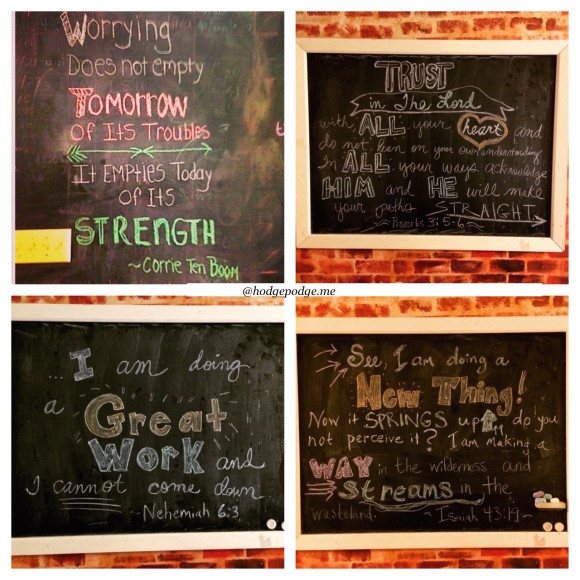 Worrying
Does not empty
Tomorrow
Of Its Troubles
It Empties Today
Of Its
STRENGTH
~Corrie Ten Boom
TRUST
in The Lord
with ALL your heart and
do not lean on your own understanding
In ALL your ways acknowledge
HIM and HE will make
your paths STRAIGHT
~Proverbs 3:5-6~
@hodgepodge.me
...I am doing
a Great
Work and
I cannot come down...
~Nehemiah 6:3
See, I am doing a
New Thing!
Now it SPRINGS up do you
not perceive it? I am making a
WAY in the wilderness and
streams in the
wasteland. ~Isaiah 43:19~